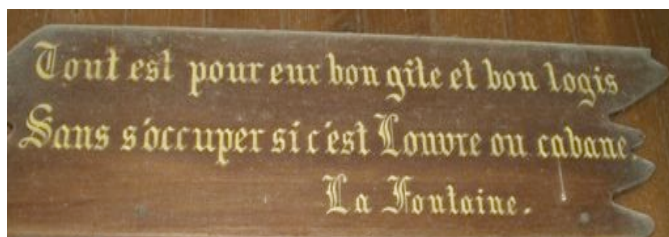 Tout est pour eux bon gîte et bon logis
Sans s'occuper si c'est Louvre ou cabane.
La Fontaine.